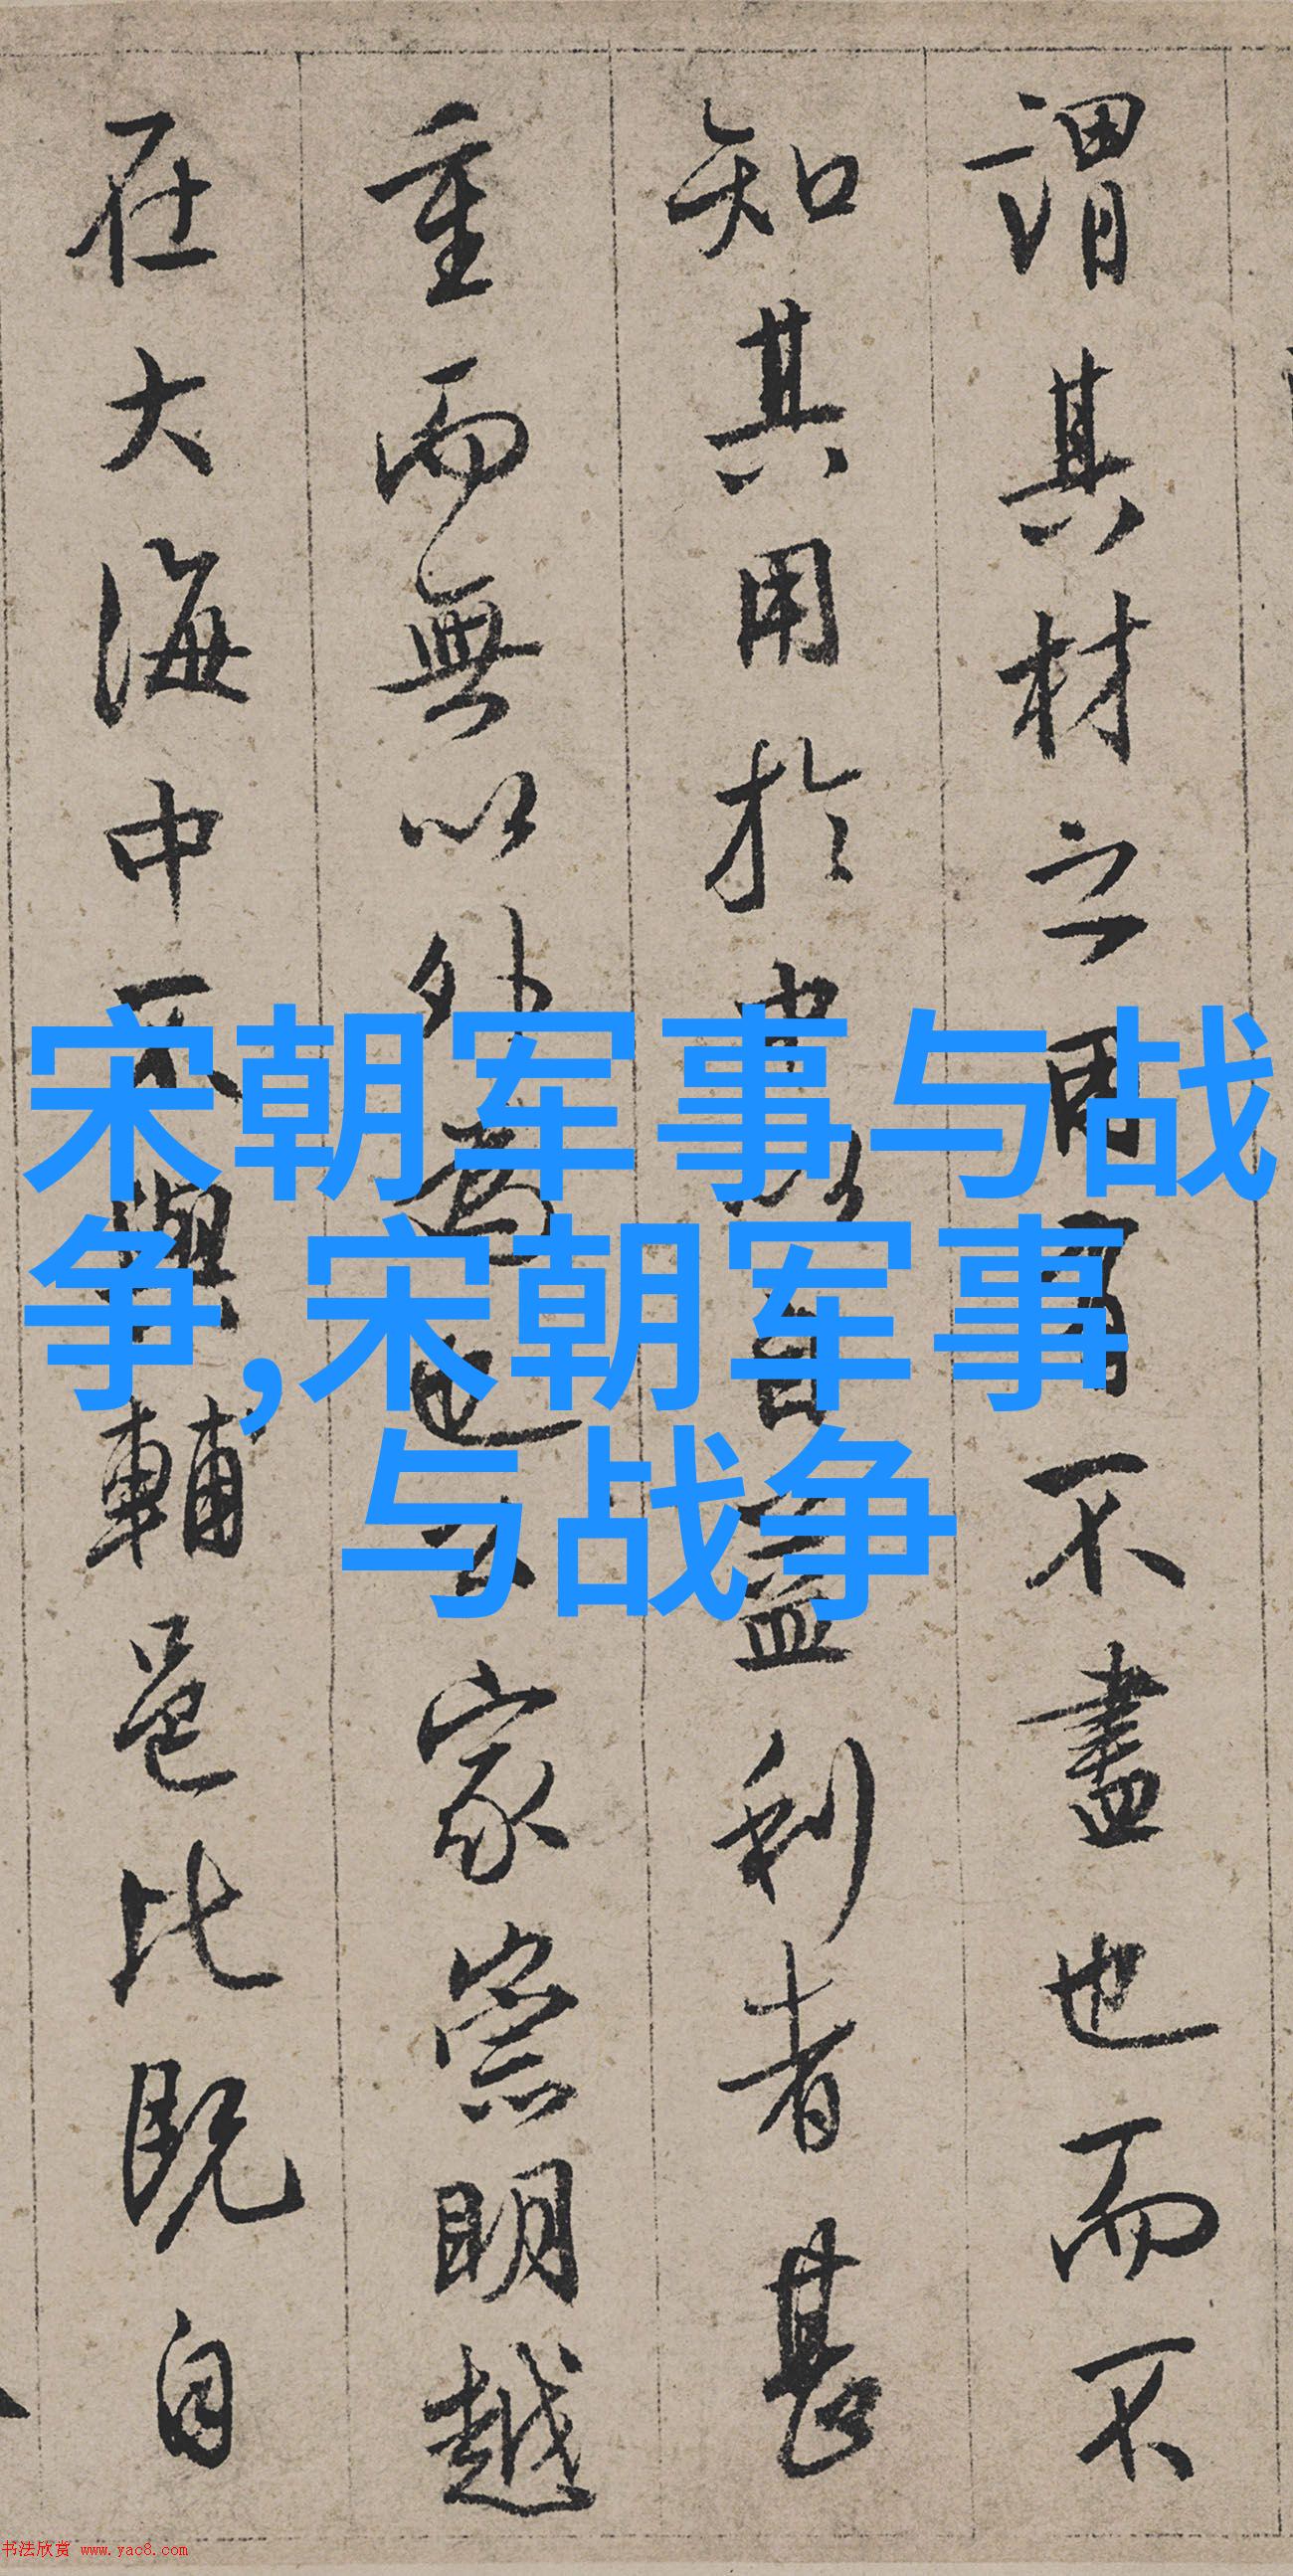 謂其材之用有不盡也而不
知其用於中以自益利者甚
重而無以外為也以家崇明越
在大海中不與輔邑比既自
宋朝军事与战
争,宋朝军事
与战争
书法欣赏 www.yac8.com